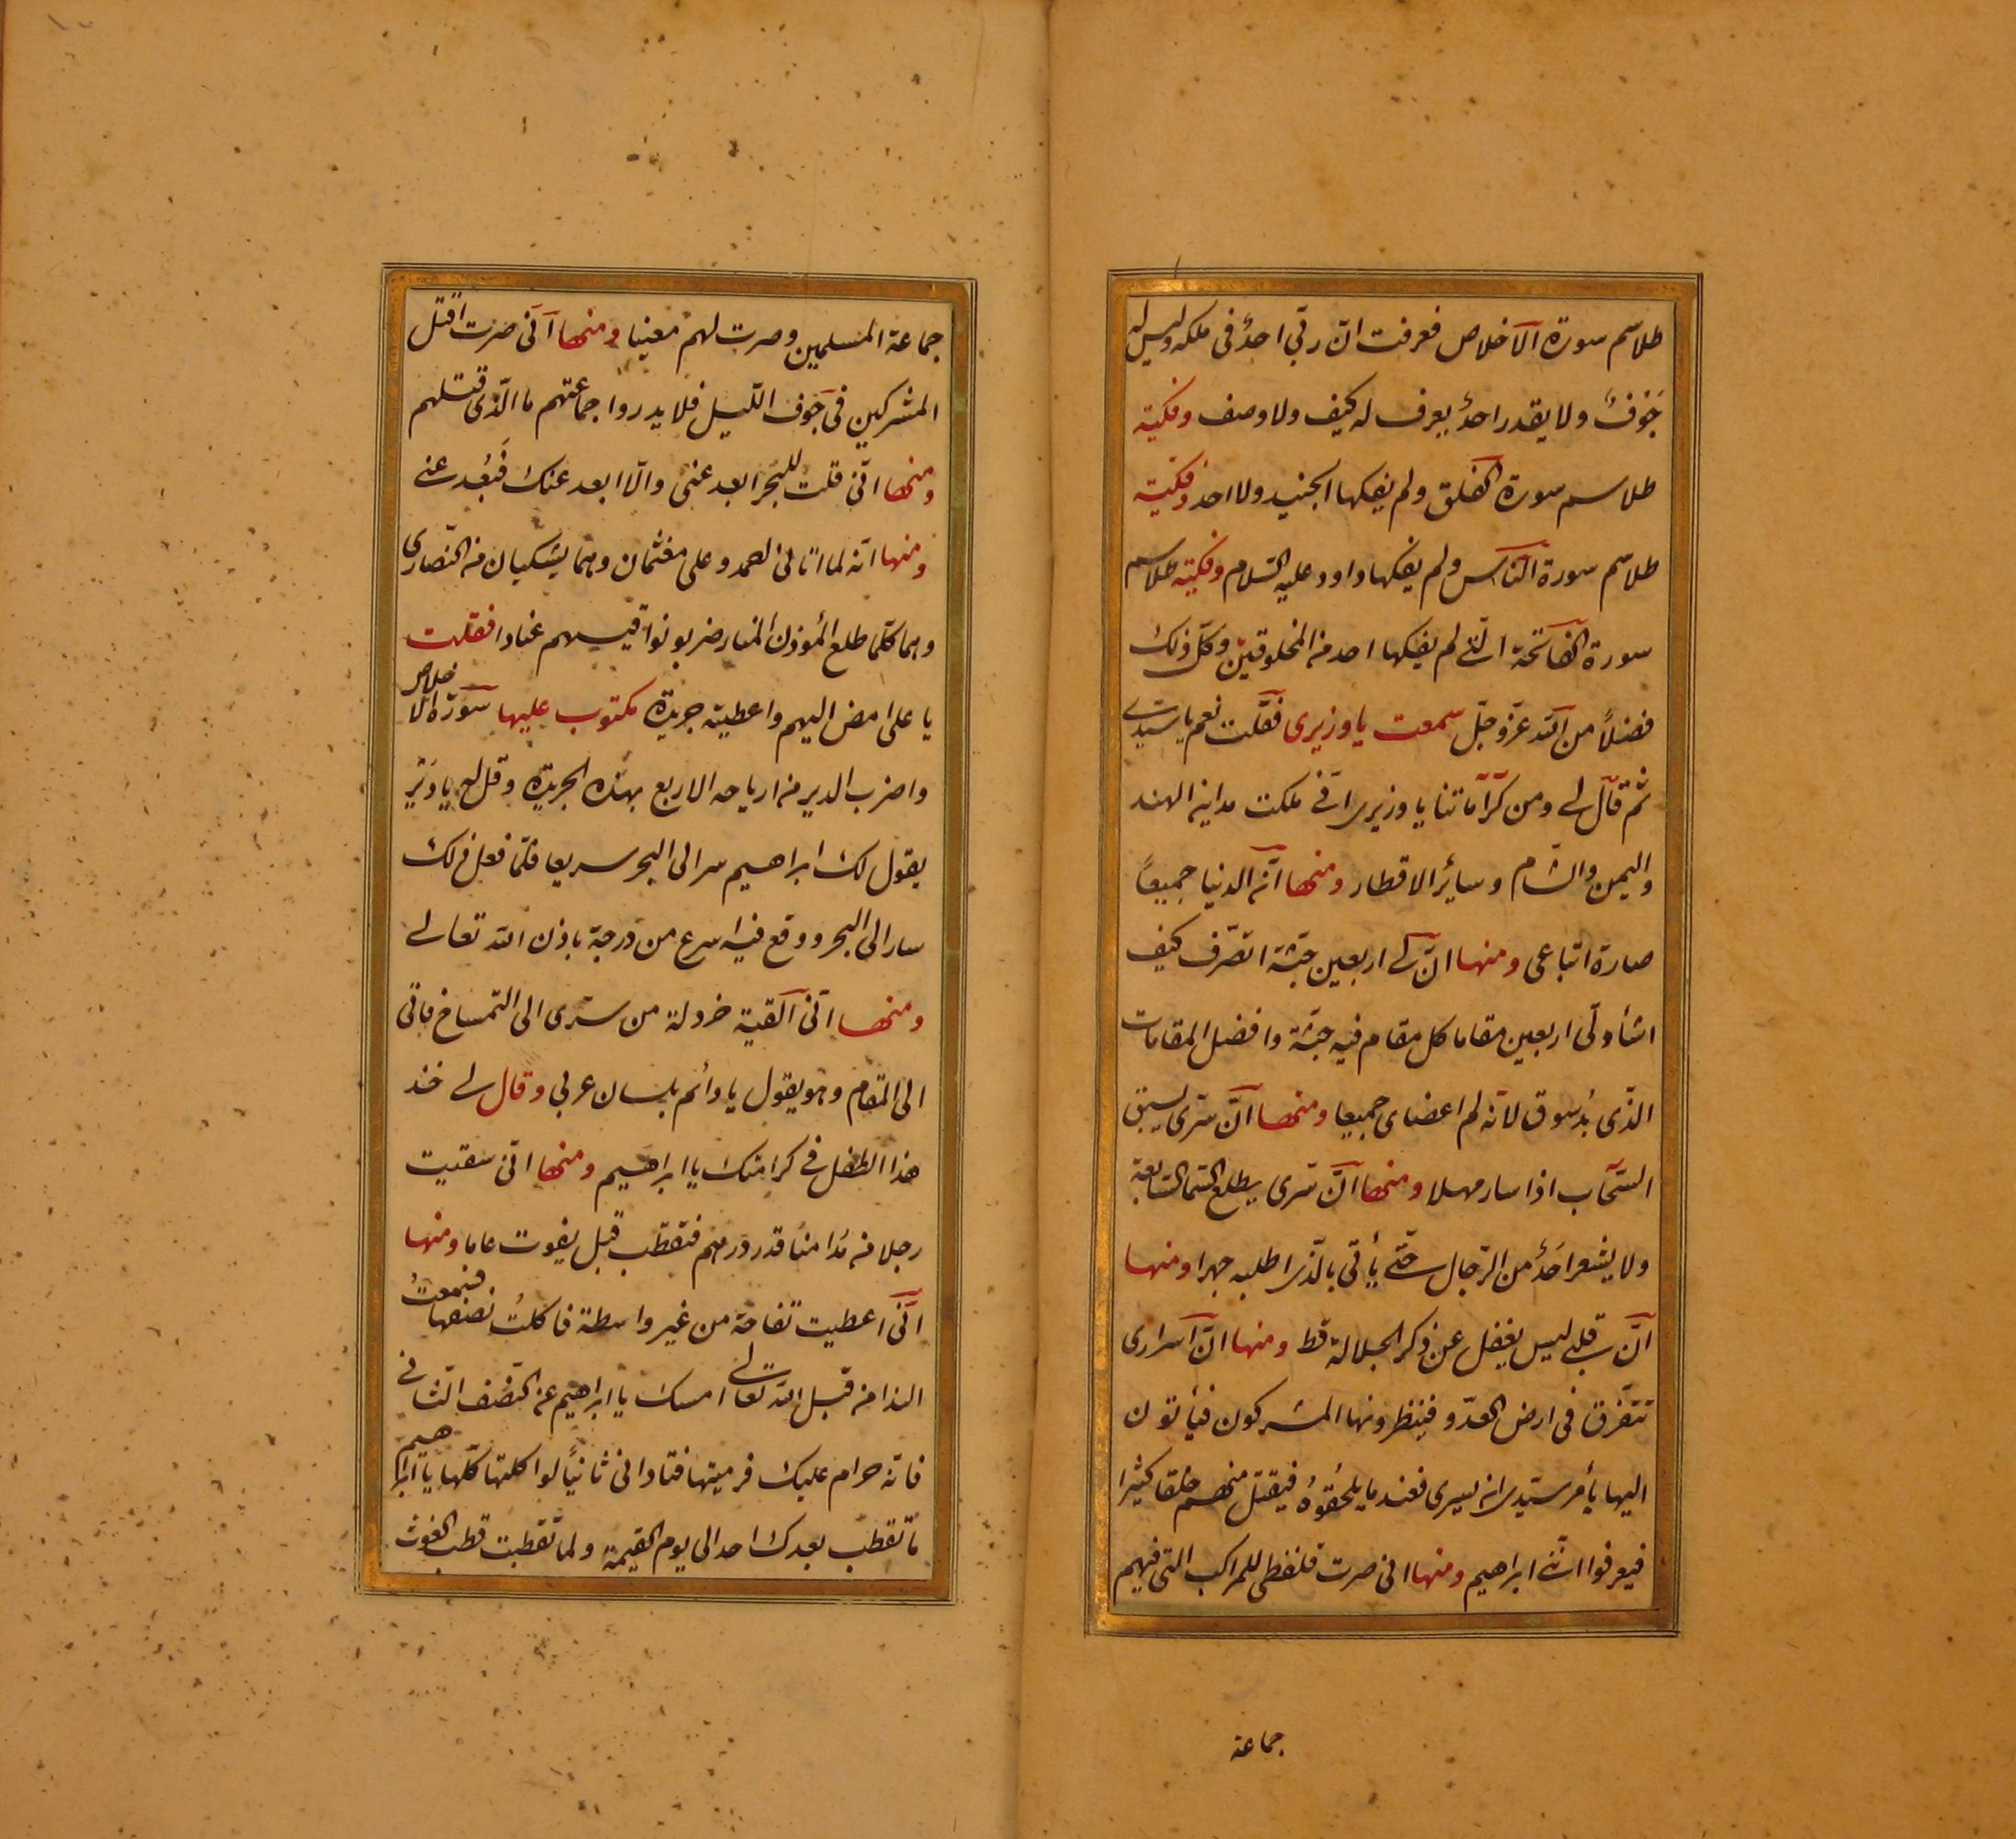 طلاسم سورة الآخلاص فعرفت انّ ربّي احدٌ في ملكه وليس له
جَوْفٌ ولا يقدر احدٌ يعرف له كيف ولا وصف وفكيّة
طلاسم سورة الفلق ولم يفكها الجنيد ولا احد وفكيّة
طلاسم سورة النّاس ولم يفكها داود عليه السّلام وفكيته طلاسم
سورة الفاتحة الّتي لم يفكها احد من المخلوقين وكلّ ذلك
فضلاً من اللّه عزّ وجلّ سمعت يا وزيري فقلت نعم يا سيّدي
ثمّ قال لي ومن كراماتنا يا وزيري انّي ملكت مداين الهند
واليمن والشّام وسائر الاقطار ومنها انّه الدنيا جميعاً
صارة اتباعي ومنها انّ لي اربعين جثّة اتصّرف كيف
اشأ ولّي اربعين مقاما كل مقام فيه جثّة وافضل المقامات
الذّي بدُسوق لانّه لم اعضاى جميعا ومنها انّ سرّى يسبق
السّحاب اذا سار مهلا ومنها انّ سّرى يطلع السّما السّابعة
ولا يشعر احَدٌ من الرّجال حتّى يأتّي بالّذى اطلبه جهرا ومنها
انّ قلبي ليس يغفل عن ذكر الجلالة قط ومنها انّ اسرارى
تتفّرق في ارض العدّو فينظرونها المشركون فيأتون
اليها يأمر سيّدى انه يسرى فعند ما يلحُقوهُ فيقتل منهم خلقا كثيرا
فيعرفوا انّني ابراهيم ومنها اني صرت فلفظى للمراكب التي فيهم
جماعة
جماعة المسلمين وصرت لهم معينا ومنها آنّى صرت اقتل
المشركين في جَوف اللّيل فلا يدروا جماعتهم ما الّذى قتلهم
ومنها انّى قلت للبَحر ابعد عنّى والّا ابعد عنك فَبعُد عنى
ومنها انّه لما اتاني احمد وعلى مغثمان وهما يشكيان من النصّارى
وهما كلّما طلع المؤذن المنار ضربو نواقيسهم عنادا فقلت
يا على امض اليهم واعطيته جريدة مكتوب عليها سورة الاخلاص
واضرب الدير من ارياحه الاربع بهذه الجريدة وقل له يا دَيْر
يقول لك ابراهيم سر الى البحر سريعا فلمّا فعل ذلك
سار الى البحر ووقع فيه اسرع من درجة باذن اللّه تعالى
ومنها انّى القيّة خردلة من سّرى الى التمساح فاتى
الى المقام وهو يقول يا دائم بلسان عربي وقال لي خذ
هذا الطفل في كرامتك يا ابراهيم ومنها انّي سقيت
رجلا من مُدامنا قدر درهم فتقطّب قبل يفوت عاما ومنها
انّى اعطيت تفاحة من غير واسطة فاكلتُ نصفها فسمعتُ
الندا من قبل اللّه تعالى امسك يا ابراهيم عن النّصف الثّاني
فانّه حرام عليك فرميتها فنادانى ثانيًا لو اكلتها كلّها يا ابراهيم
ما تقطّب بعدك احد الى يوم القيمة ولما تقطّبت قطب الغوث